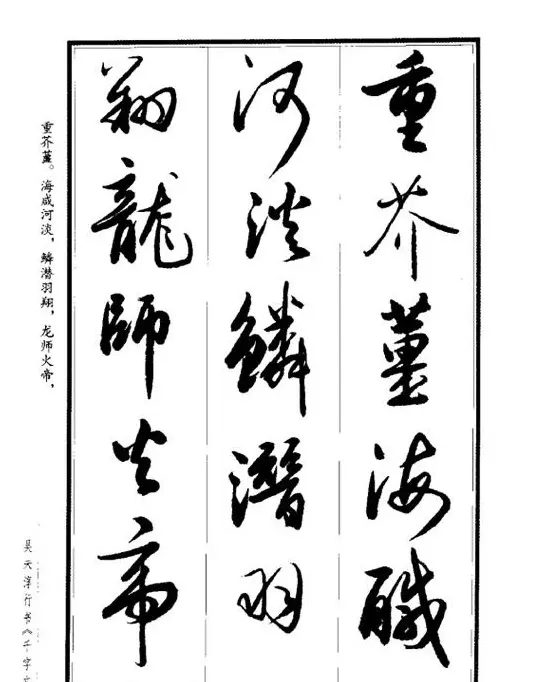 重芥薑海醎
河淡鱗潛羽
翔龍師火帝
重芥薑。海咸河淡，鳞潜羽翔，龙师火帝，
吴天淳行书《千字文